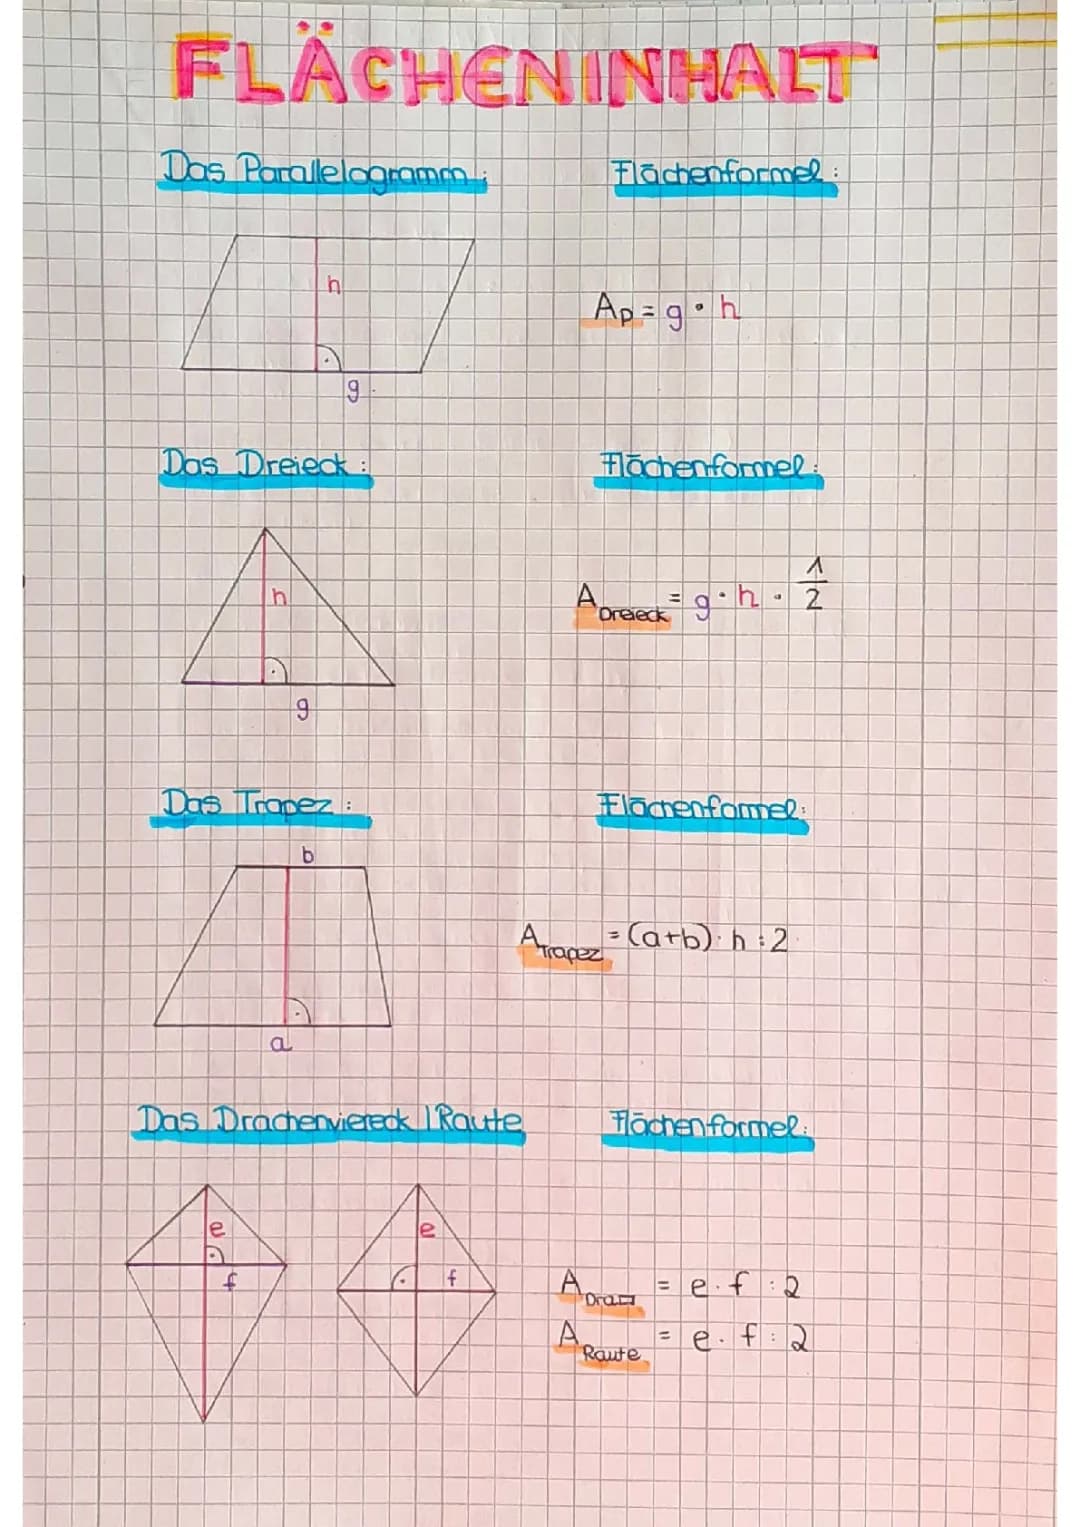 FLÄCHENINHALT
Das Parallelogramm: Flächenformel:
h
A_P = g · h
g
Das Dreieck: Flächenformel:
h
A_Dreieck = g · h · 1/2
g
Das Trapez: Flächenformel:
b
A_Trapez = (a+b) · h : 2
a
Das Drachenviereck / Raute Flächenformel:
e e
f f
= e · f : 2
A_Raute = e · f : 2